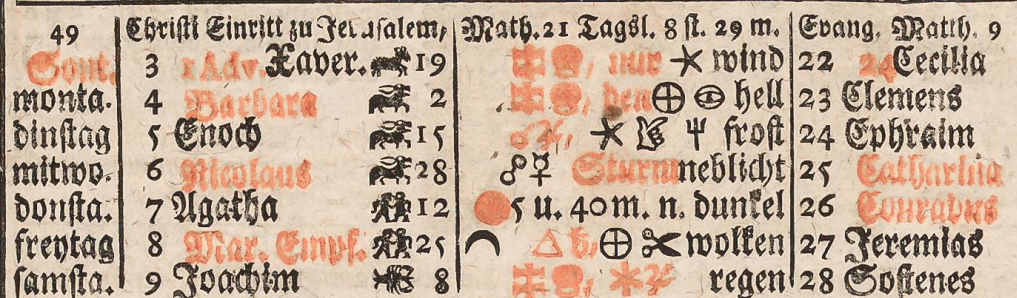 49 Christi Einritt zu Jerusalem, Math. 21 Tagsl. 8 st. 29 m. Evang. Matth. 9
Sont. 3 1 Adv. Xaver. 19 nur wind 22 24 Cecilia
monta. 4 Barbara 2 den hell 23 Clemens
dinstag 5 Enoch 15 frost 24 Ephraim
mitwo. 6 Nicolaus 28 ☍☿ Sturm neblicht 25 Catharina
donsta. 7 Agatha 12 5 u. 40 m. n. dunkel 26 Conradus
freytag 8 Mar. Empf. 25 △♄, wolken 27 Jeremias
samsta. 9 Joachim 8 regen 28 Sostenes